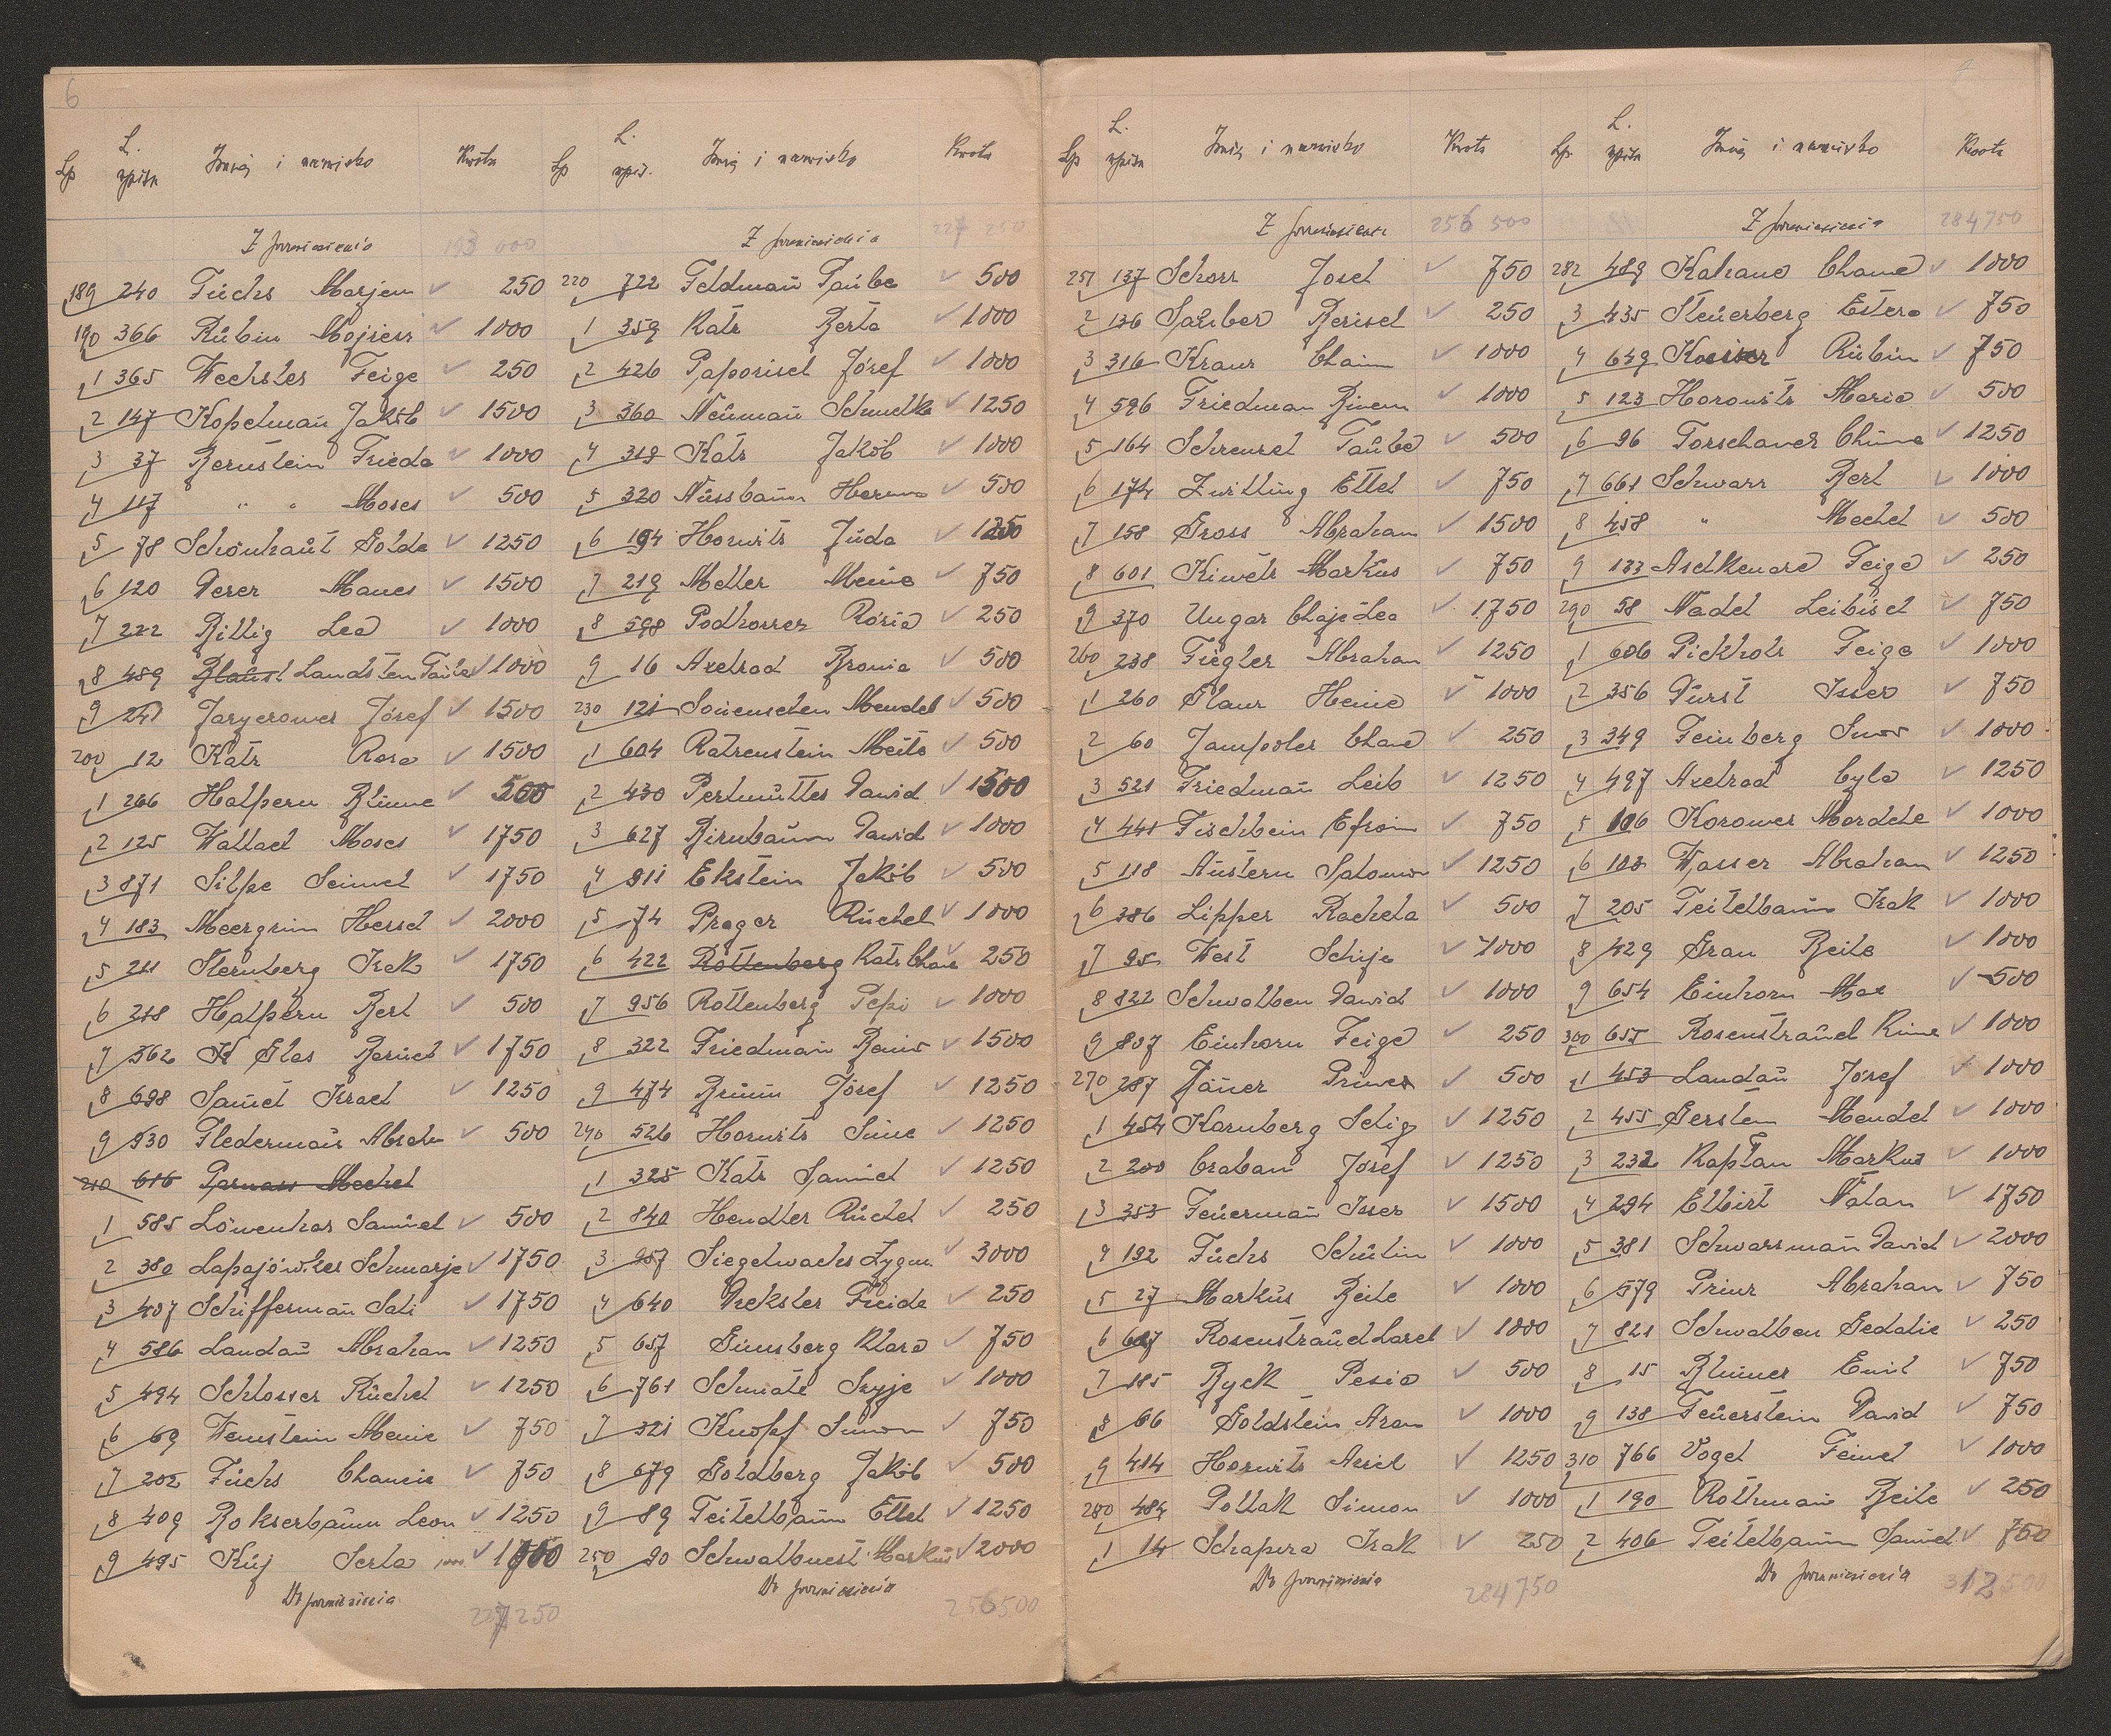 6
Lp L. spisu Imię i nazwisko Kwota
Z przeniesienia 193 000
189 240 Fuchs Marjem 250
190 366 Rubin Mojżesz 1000
1 365 Wechsler Feige 250
2 147 Kopelman Jakób 1500
3 37 Bernstein Frieda 1000
4 117 " " Moses 500
5 78 Schönhaut Golde 1250
6 120 Derer Manes 1500
7 222 Billig Lea 1000
8 459 Landsten Taube 1000
9 241 Jaryczower Józef 1500
200 12 Katz Rosa 1500
1 266 Halpern Blime 500
2 125 Wallach Moses 1750
3 871 Silpe Seimel 1750
4 183 Meergrün Hersch 2000
5 211 Sternberg Izak 1750
6 218 Halpern Berl 500
7 362 Glas Baruch 1750
8 698 Samet Israel 1250
9 530 Fledermaus Abraham 500
210 616 Parnass Mechel
1 585 Löwenkar Samuel 500
2 380 Łapajówker Schmarje 1750
3 407 Schifferman Sali 1750
4 586 Landau Abraham 1250
5 494 Schlosser Ruchel 1250
6 69 Wenstein Menie 750
7 202 Fuchs Chancie 750
8 409 Bokserbaum Leon 1250
9 495 Kuj Serla 1000
Do przeniesienia 227 250
Lp L. spis. Imię i nazwisko Kwota
Z przeniesienia 227 250
220 722 Feldman Taube 500
1 359 Katz Berta 1000
2 426 Paporisch Józef 1000
3 360 Neuman Schmelke 1250
4 319 Katz Jakób 1000
5 320 Nussbaum Herman 500
6 194 Horwitz Juda 1250
7 219 Meller Meine 750
8 598 Podhorcer Rózia 250
9 16 Axelrad Bronia 500
230 121 Sonenschen Mendel 500
1 604 Katzenstein Meite 500
2 430 Perlmutter Dawid 1500
3 627 Birnbaum Dawid 1000
4 911 Ekstein Jakób 500
5 74 Prager Ruchel 1000
6 422 Rottenberg Katz Chane 250
7 956 Rottenberg Pepi 1000
8 322 Friedman Beniu 1500
9 474 Brumm Józef 1250
240 526 Horwitz Sime 1250
1 325 Katz Samuel 1250
2 840 Hendler Ruchel 250
3 957 Siegelwachs Zygm. 3000
4 640 Dreksler Freida 250
5 657 Günsberg Klara 750
6 761 Schmate Szyje 1000
7 321 Knopf Simon 750
8 679 Goldberg Jakób 500
9 89 Teitelbaum Ettel 1250
250 90 Schwalbnest Markus 2000
Do przeniesienia 256500
Lp L. spisu Imię i nazwisko Kwota
Z przeniesienia 256 500
251 137 Schorr Josel 750
2 136 Sauber Berisch 250
3 316 Kraus Chaim 1000
4 596 Friedman Binem 1000
5 164 Schrenzel Taube 500
6 174 Zwilling Ettel 750
7 158 Gross Abraham 1500
8 601 Kiwetz Markus 750
9 370 Ungar Chaje Lea 1750
260 238 Fiegler Abraham 1250
1 260 Glanz Henie 1000
2 60 Jampoler Chane 250
3 521 Friedman Leib 1250
4 441 Fischbein Efroim 750
5 118 Austern Salomon 1250
6 386 Lipper Rachela 500
7 95 West Schije 1000
8 822 Schwalben Dawid 1000
9 807 Einhorn Feige 250
270 287 Jauer Pinez 500
1 454 Kornberg Selig 1250
2 200 Craban Józef 1250
3 353 Feuerman Isser 1500
4 192 Fuchs Schulim 1000
5 27 Markus Beile 1000
6 667 Rosenstrauch Lazel 1000
7 185 Byck Pesia 500
8 66 Goldstein Aron 1000
9 414 Horwitz Asiel 1250
280 484 Pollak Simon 1000
1 14 Schapira Izak 250
Do przeniesienia 284750
Lp. L. spisu Imię i nazwisko Kwota
Z przeniesienia 284750
282 489 Kahane Chane 1000
3 435 Steuerberg Estera 750
4 649 Kaiser Rubin 750
5 123 Horowitz Maria 500
6 96 Torschauer Chune 1250
7 661 Schwarz Berl 1000
8 458 " Mechel 500
9 133 Aschkenase Feige 250
290 58 Nadel Leibisch 750
1 606 Pickholz Feige 1000
2 356 Durst Isser 750
3 349 Feinberg Simon 1000
4 497 Axelrad Cyla 1250
5 106 Korower Mordche 1000
6 103 Wasser Abraham 1250
7 205 Teitelbaum Izak 1000
8 429 Gran Beile 1000
9 654 Einhorn Max 500
300 655 Rosenstrauch Rime 1000
1 453 Landau Józef 1000
2 455 Gersten Mendel 1000
3 232 Kapłan Markus 1000
4 294 Elbirt Natan 1750
5 381 Schwarzman Dawid 2000
6 579 Prinz Abraham 750
7 821 Schwalben Gedalie 250
8 15 Blumer Emil 750
9 138 Feuerstein Dawid 750
310 766 Vogel Feiwel 1000
1 190 Rothman Beile 250
2 406 Teitelbaum Samuel 750
Do przeniesienia 312500